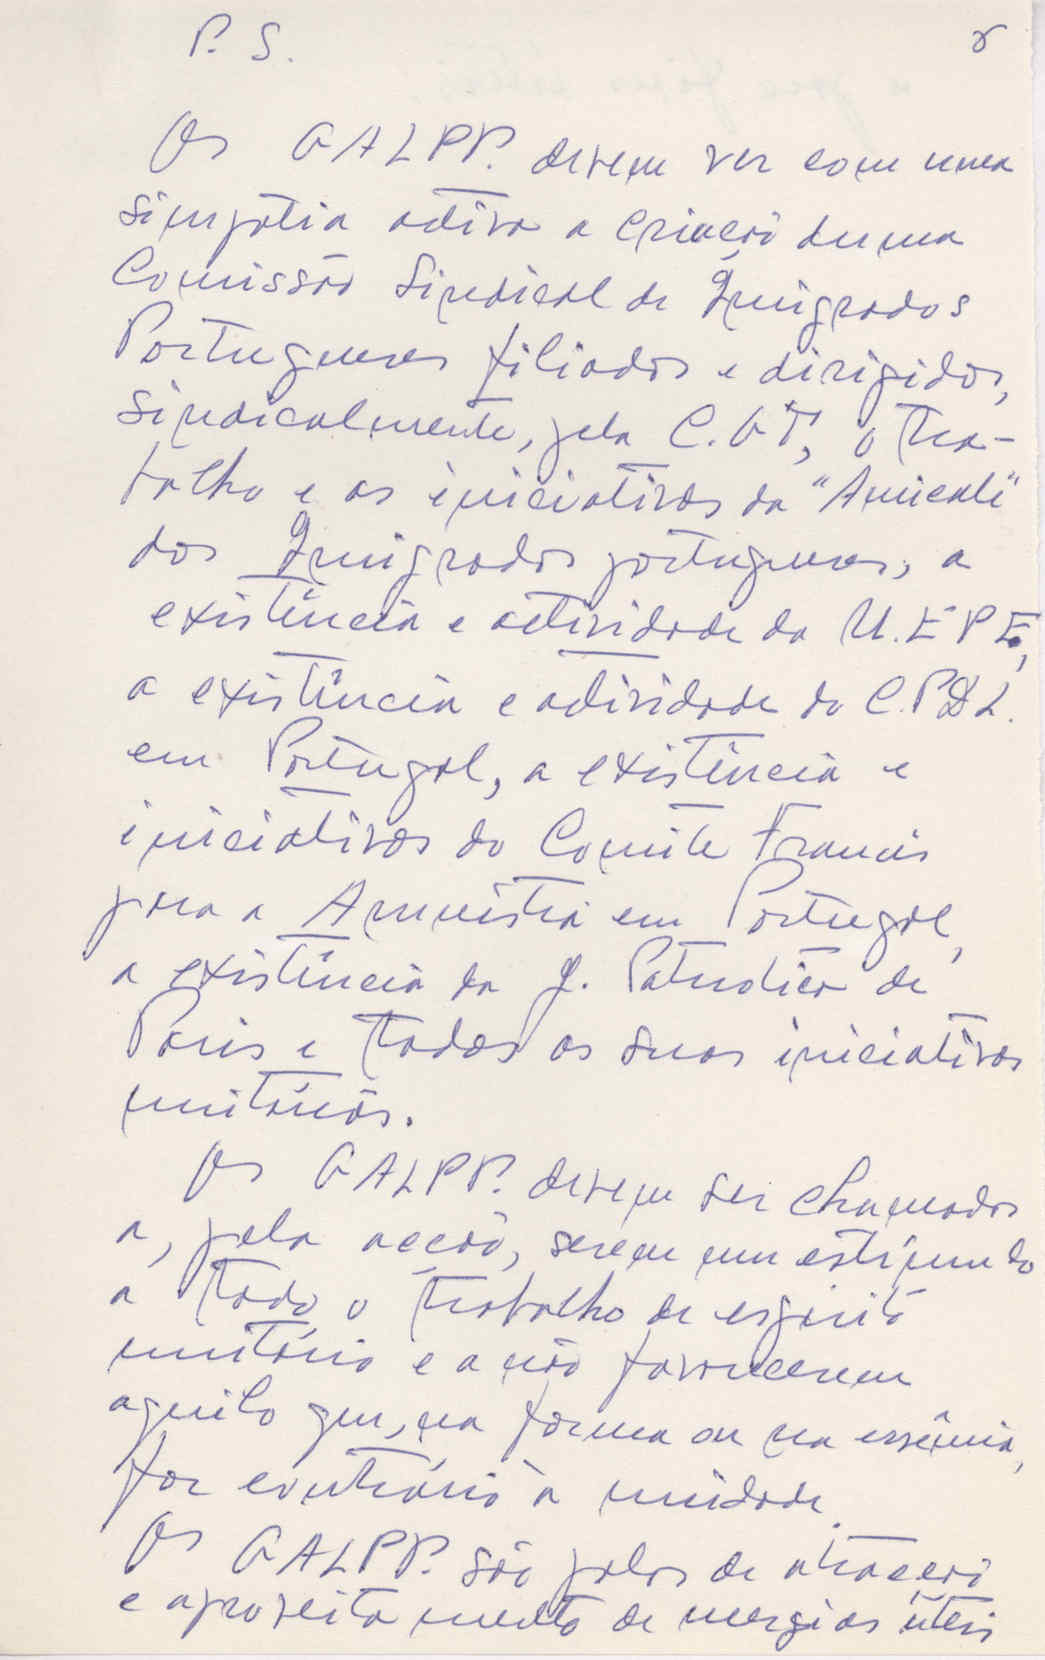 P. S.
Os GALPP. devem ver com uma
simpatia activa a criação duma
Comissão Sindical de Imigrados
Portugueses filiados e dirigidos,
sindicalmente, pela C.GT, o tra-
balho e as iniciativas da "Amicale"
dos Imigrados portugueses, a
existência e actividade da U.EPE,
a existência e actividade do C.PDL.
em Portugal, a existência e
iniciativas do Comite Francês
para a Amnistia em Portugal,
a existência da J. Patriotica de
Paris e todas as suas iniciativas
unitárias.
Os GALPP. devem ser chamados
a, pela acção, serem um estímulo
a todo o trabalho de espirito
unitário e a não favorecerem
aquilo que, na forma ou na essência,
for contrário à unidade.
Os GALPP. são polos de atracção
e aproveitamento de energias úteis